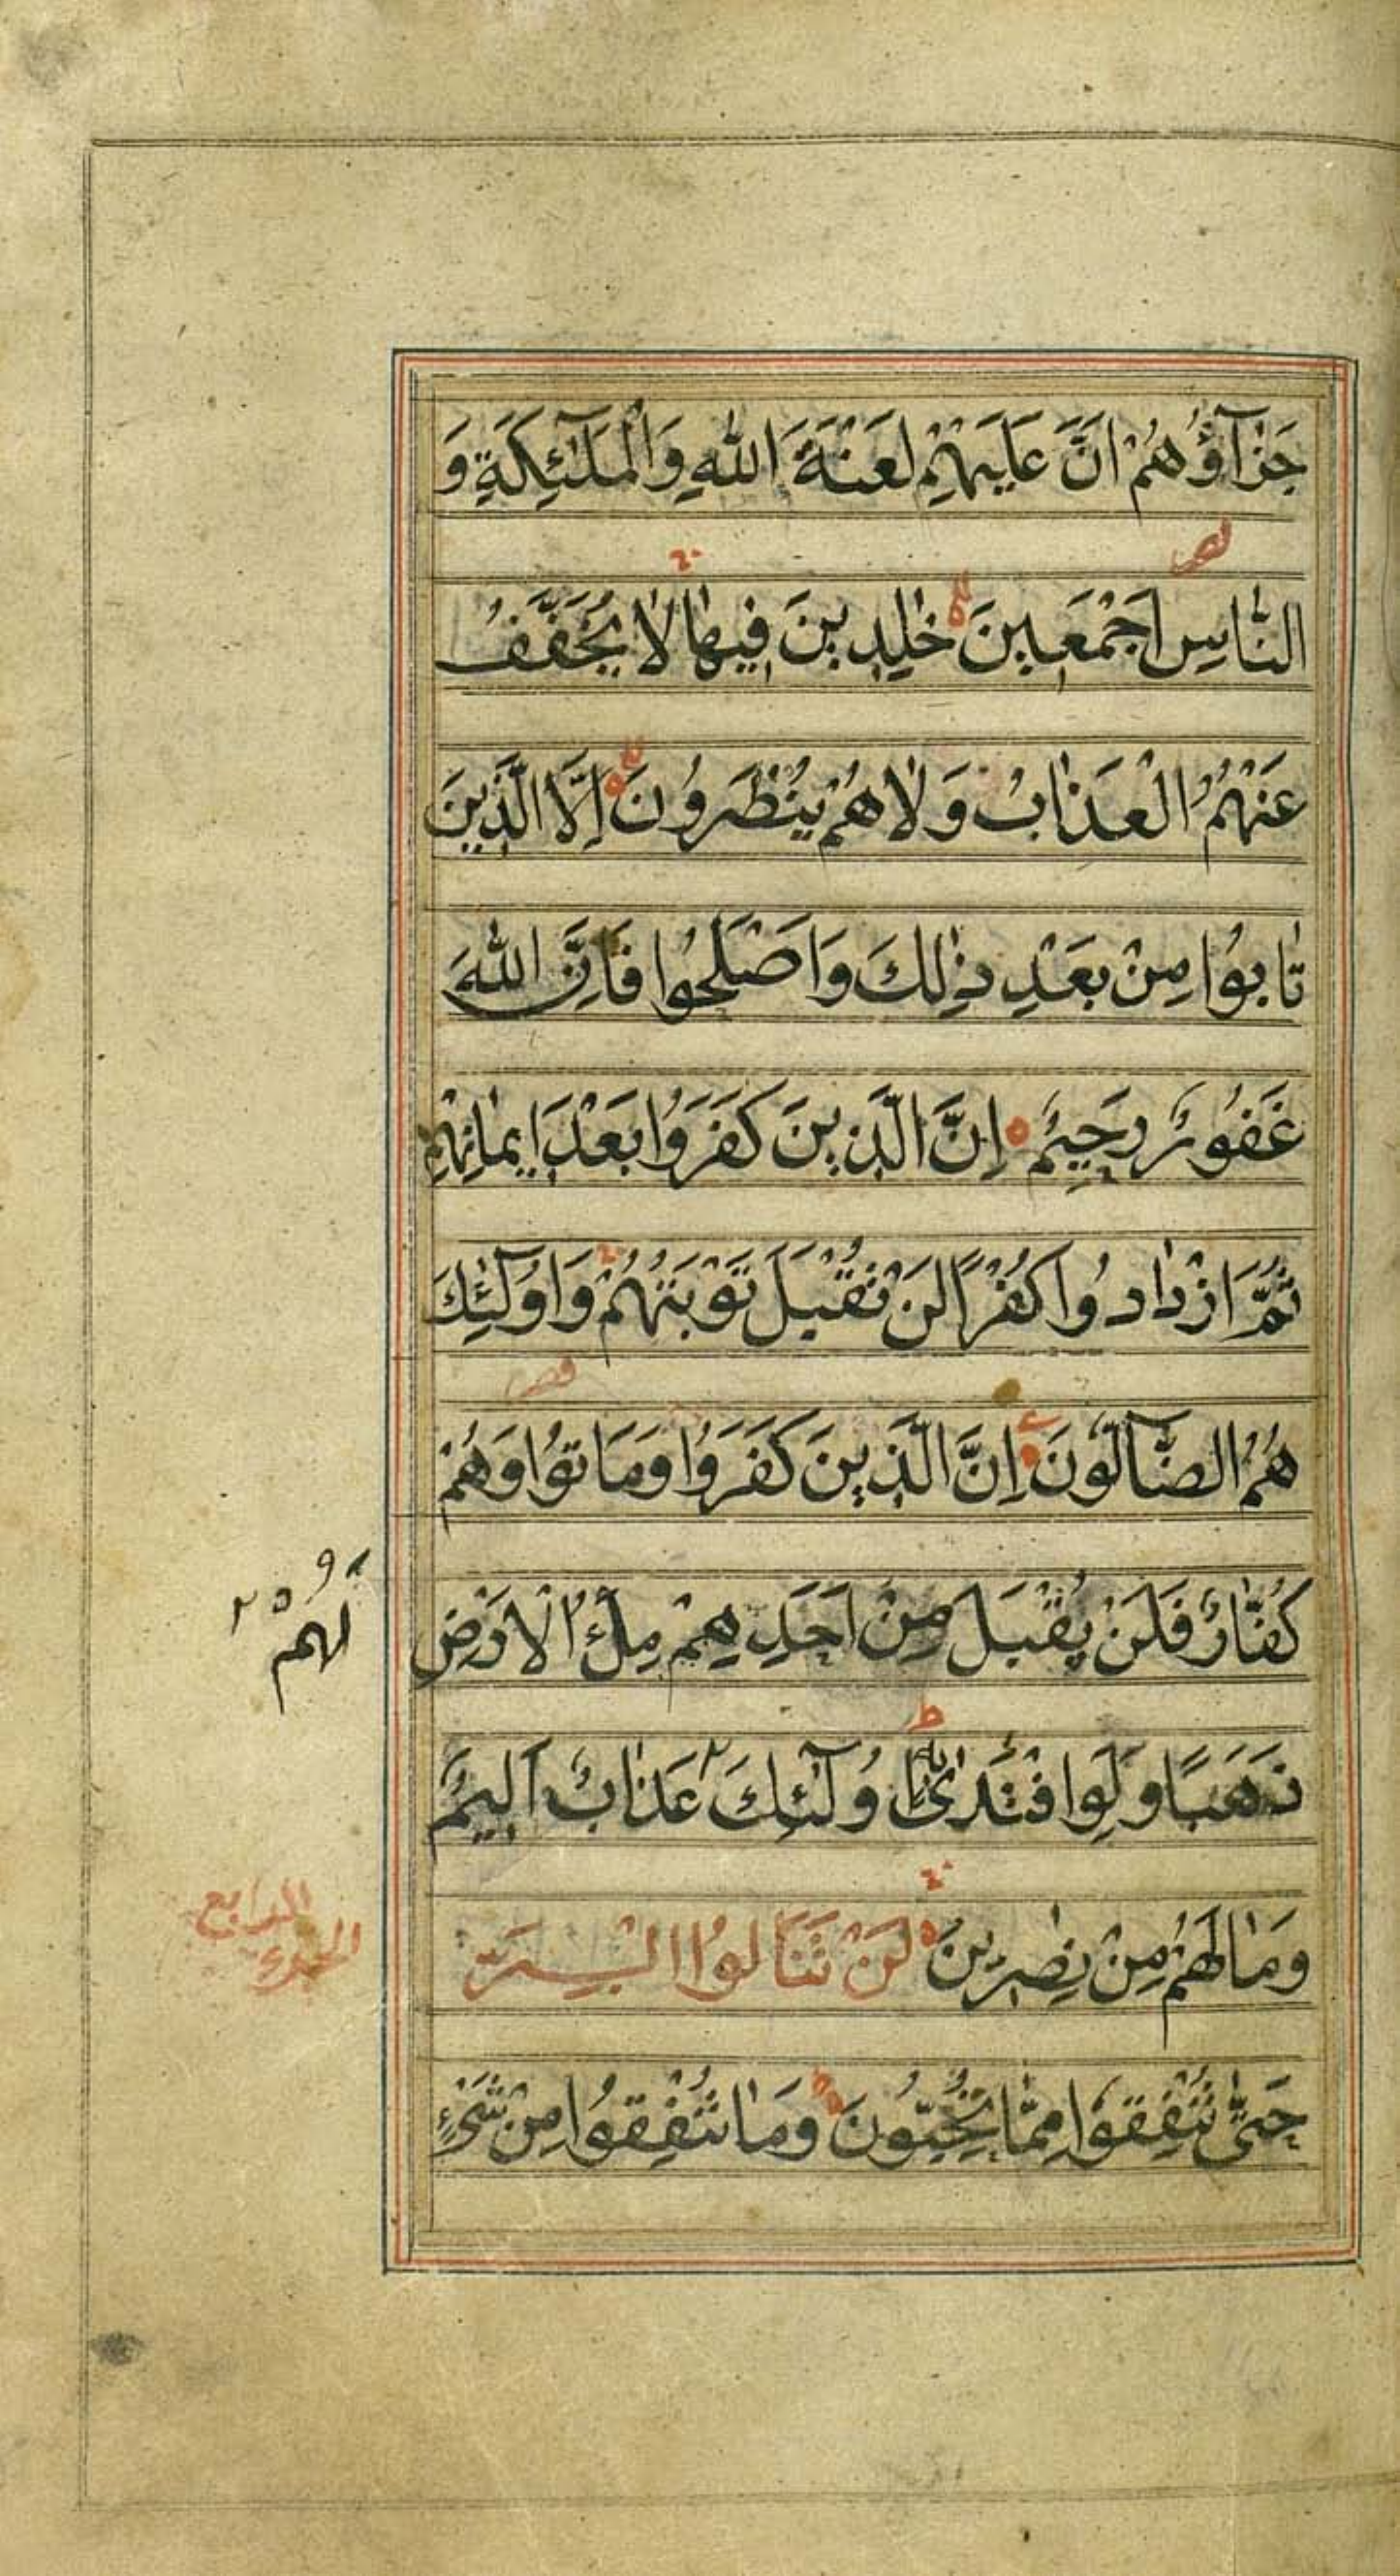 جَزَآؤُهُمْ اَنَّ عَلَيْهِمْ لَعْنَةَ اللّٰهِ وَالْمَلٰٓئِكَةِ وَ
النَّاسِ اَجْمَعِينَ خٰلِدِينَ فِيهٰا لٰا يُخَفَّفُ
عَنْهُمُ الْعَذٰابُ وَلٰا هُمْ يُنْظَرُونَ اِلَّا الَّذِينَ
تٰابُوا مِنْ بَعْدِ ذٰلِكَ وَاَصْلَحُوا فَاِنَّ اللّٰهَ
غَفُورٌ رَحِيمٌ اِنَّ الَّذِينَ كَفَرُوا بَعْدَ اِيمٰانِهِمْ
ثُمَّ ازْدٰادُوا كُفْرًا لَنْ تُقْبَلَ تَوْبَتُهُمْ وَاُولٰٓئِكَ
هُمُ الضَّآلُّونَ اِنَّ الَّذِينَ كَفَرُوا وَمَاتُوا وَهُمْ
كُفّٰارٌ فَلَنْ يُقْبَلَ مِنْ اَحَدِهِمْ مِلْءُ الْاَرْضِ
ذَهَبًا وَلَوِ افْتَدٰى بِهٖ اُولٰٓئِكَ عَذٰابٌ اَلِيمٌ
لَهُمْ
وَمٰا لَهُمْ مِنْ نٰصِرِينَ لَنْ تَنَالُوا الْبِرَّ
الجزء الرابع
حَتّٰى تُنْفِقُوا مِمّٰا تُحِبُّونَ وَمٰا تُنْفِقُوا مِنْ شَيْءٍ